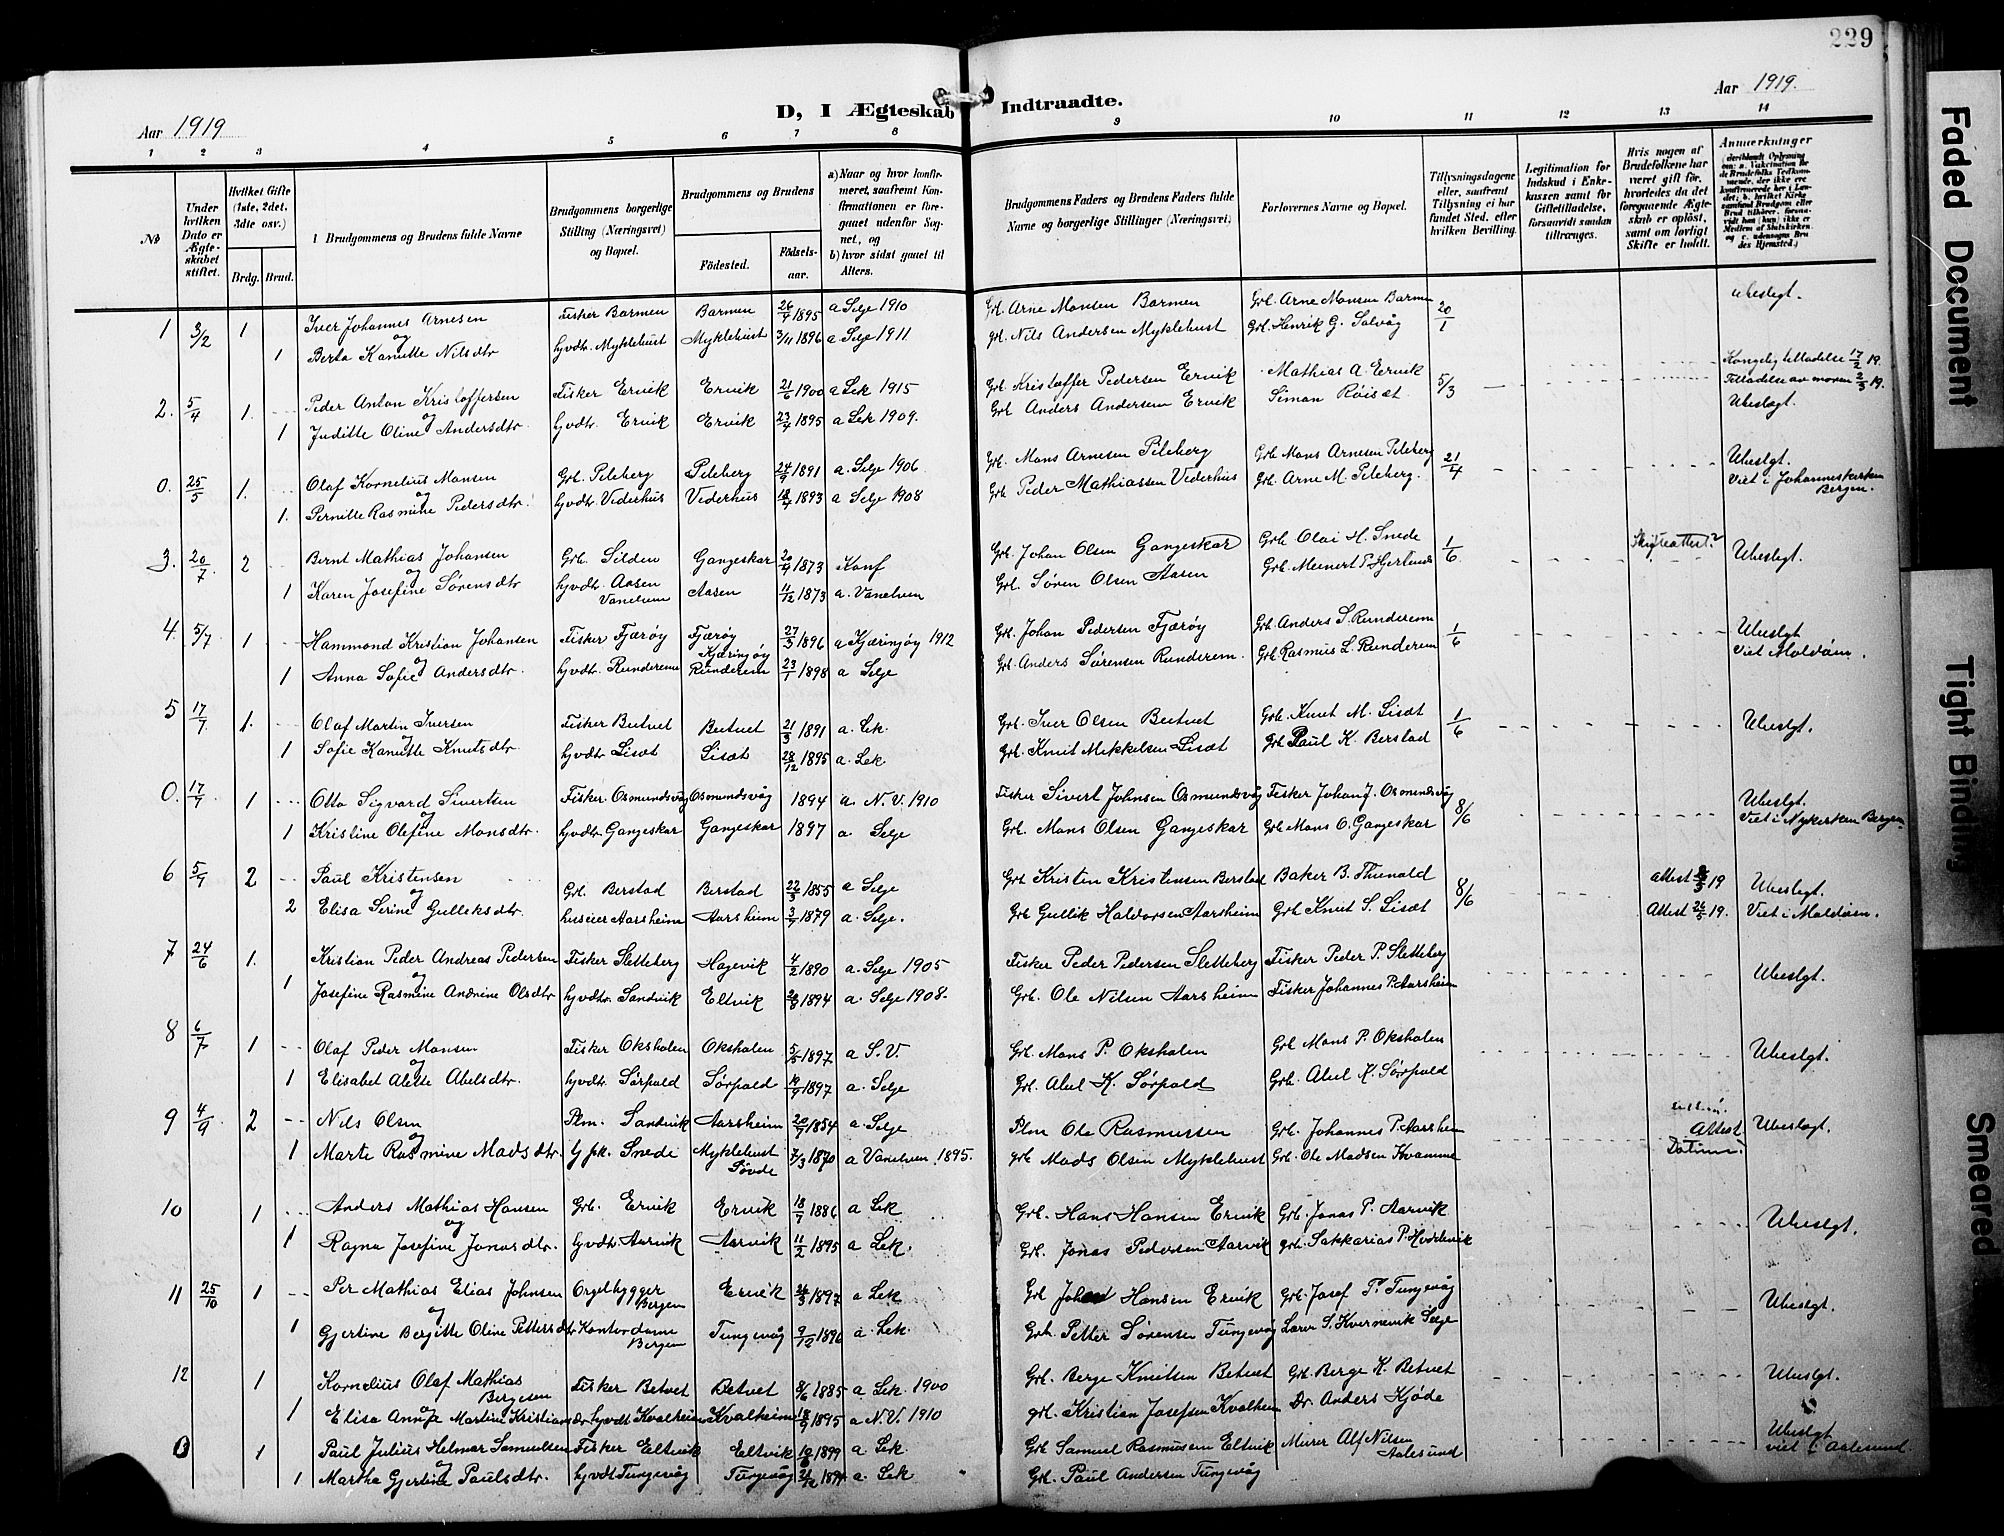 229
Aar 1919
D, I Ægteskab Indtraadte.
Aar 1919.
1 2 3 4 5 6 7 8 9 10 11 12 13 14
No
Under hvilken Dato er Ægteskabet stiftet.
Hvilket Gifte (1ste, 2det, 3dte osv.)
Brdg. Brud.
Brudgommens og Brudens fulde Navne
Brudgommens borgerlige Stilling (Næringsvei) og Bopæl.
Brudgommens og Brudens
Födested.
Födselsaar.
a) Naar og hvor konfirmeret, saafremt Konfirmationen er foregaaet udenfor Sognet, og
b) hvor sidst gaaet til Alters.
Brudgommens Faders og Brudens Faders fulde Navne og borgerlige Stillinger (Næringsvei)
Forlovernes Navne og Bopæl.
Tillysningsdagene eller, saafremt Tillysning ei har fundet Sted, efter hvilken Bevilling.
Legitimation for Indskud i Enkekassen samt for Giftetilladelse, forsaavidt saadan tiltrænges.
Hvis nogen af Brudefolkene har været gift för, hvorledes da det foregaaende Ægteskab er oplöst, samt om lovligt Skifte er holdt.
Anmærkninger
1 3/2 1 Iver Johannes Arnesen Fisker Barmen Barmen 26/4 1895 a Selje 1910 Grb. Arne Monsen Barmen Grb. Arne Monsen Barmen 20/1 Ubeslegt.
og
1 Berta Kanutte Nilsdtr hvdtr. Myklebust Myklebust 3/11 1896 a Selje 1911 grb. Nils Andersen Myklebust Grb. Henrik G. Salvåg
Kongelig tilladelse 17/2 19.
2. 5/4 1. Peder Anton Kristoffersen Fisker Ervik Ervik 21/6 1900 a Lek 1915 Grb Kristoffer Pedersen Ervik Mathias A. Ervik 5/3 Tilladelse av moren 2/3 19.
og
1 Juditte Oline Andersdtr hvdtr. Ervik Ervik 23/4 1895 a Lek 1909. Grb Anders Andersen Ervik Simon Röisæt. Ubeslægt.
0. 25/5 1. Olaf Kornelius Monsen Grb. Peleberg Peleberg 24/9 1891 a. Selje 1906 Grb. Mons Arnesen Peleberg Grb Mons Arnesen Peleberg 21/4 Ubeslgt.
og
1. Pernille Rasmine Pedersdtr. hvdtr. Vederhus Vederhus 1893 a Selje 1908 Grb Peder Mathiassen Vederhus Grb. Arne M. Peleberg. Viet i Johanneskirken Bergen.
3. 20/7 2 Bernt Mathias Johansen Grb. Silden Gangeskar 20/9 1873 Konf Grb. Johan Olsen Gangeskar Grb Olai H. Snede 1/6 Skifteattest? Ubeslgt.
og
1 Karen Josefine Sørensdtr hvdtr. Aasen Vanelven Aasen 11/12 1873 a. Vanelven Grb. Sören Olsen Aasen Grb. Meinert P. Hjertenes
4. 5/7 1 Hammond Kristian Johansen Fisker Fjærøy Fjærøy Kjæringøy 27/3 1896 a Kjæringøy 1912 Grb. Johan Pedersen Fjærøy Grb Anders S. Runderem 1/6 Ubeslgt
og
1 Anna Sofie Andersdtr. hvdtr. Runderem Runderem 23/1 1898 a Selje Grb. Anders Sørensen Runderem. Grb. Rasmus L. Runderem Viet Moldöen.
5 17/7 1. Olaf Martin Iversen Fisker Betvet Betvet 21/3 1891 a. Lek. Grb. Iver Olsen Betvet Grb. Knut M. Lisæt 1/6 Ubeslgt.
og
1 Sofie Kanutte Knutsdtr hvdtr Lisæt Lisæt 28/12 1895 a. Lek grb. Knut Mikkelsen Lisæt Grb Paul K. Berstad
0. 17/7 1 Otto Sigvard Sivertsen Fisker. Osmundsvåg Osmundsvåg 1894 a. N.V. 1910 Fisker Sivert Johnsen Osmundsvåg Fisker Johan J. Osmundsvåg 8/6 Ubeslgt.
og
1 Kristine Olefine Monsdtr. hvdtr Gangeskar Gangeskar 1897 a Selje Grb. Mons Olsen Gangeskar Grb Mons O. Gangeskar Viet i Nykirken Bergen
6 5/7 2 Paul Kristensen Grb. Berstad Berstad 22/3 1855 a Selje Grb Kristen Kristensen Berstad Baker B. Thunold 8/6 attest 19 Ubeslgt.
og
2 Elisa Serine Gulleksdtr. huseier Aarsheim Aarsheim 3/7 1879 a. Selje. Grb Gullik Halvorsen Aarsheim Grb Knut S. Lisæt Attest 26/5 19. Viet i Moldöen.
7 24/6 1. Kristian Peder Andreas Pedersen Fisker Sletteberg Hagevik 4/2 1890 a. Selje 1905 Fisker Peder Pedersen Sletteberg Fisker Peder P. Sletteberg Ubeslgt.
og
1 Josefine Rasmine Andrine Olsdtr hvdtr. Sandvik Eltvik 1894 a. Selje 1908. Grb. Ole Nilsen Aarsheim Fisker Johannes P. Aarsheim
8 6/7 1 Olaf Peder Monsen Fisker Oksholen Oksholen 5/5 1897 a S.V. Grb. Mons P. Oksholen Grb Mons P. Oksholen Ubeslgt.
og
1 Elisabet Alette Abelsdtr. hvdtr. Sørpold Sørpold 19/9 1897 a. Selje Grb. Abel K. Sørpold Grb. Abel K. Sørpold
9 4/9 2 Nils Olsen Plm. Sandvik Aarsheim 20/7 1854 a. Selje Plm Ole Rasmussen Grb. Johannes P. Aarsheim Attest Ubeslægt.
og
1 Marte Rasmine Madsdtr. Snede Myklebust Sövde 7/3 1870 a Vanelven 1895. grb. Mads Olsen Myklebust Grb. Ole Madsen Kvamme Datum?
10 1 Anders Mathias Hansen Grb. Ervik Ervik 18/7 1886 a Lek Grb. Hans Hansen Ervik Grb. Jonas P. Aarvik Ubeslgt.
og
1 Ragna Josefine Jonasdtr. hvdtr. Aarvik Aarvik 11/2 1895 a Lek. Grb. Jonas Pedersen Aarvik grb. Sakkarias P. Hoddevik
11 25/10 1 Per Mathias Elias Johnsen Orgelbygger Bergen Ervik 1897 a. Lek Grb Hansen Ervik Grb. Josef P. Tungevåg Ubeslgt.
og
1 Gjertine Bergitte Oline Pettersdtr Kontordame Bergen Tungevåg 9/12 1896 a. Lek. Grb. Petter Sørensen Tungevåg Lærer S. Kvernevik Selje
12 1 Kornelius Olaf Mathias Bergesen Fisker Betvet Betvet 8/6 1885 a Lek. 1900 Grb. Berge Knutsen Betvet Grb. Berge K. Betvet Ubeslgt.
og
1 Elisa Anne Martine Kristiansdtr hvdt Kvalheim Kvalheim 18/9 1895 a N.V. 1910 grb. Kristian Josefsen Kvalheim Dr. Anders Kjøde
0 1 Paul Julius Helmar Samuelsen Fisker Eltvik Eltvik 1899 a. Lek. Grb Samuel Rasmusen Eltvik Murer Alf Nilsen Aalesund Ubeslgt
og
1 Martha Gjertine Paulsdtr. hvdt Tungevåg Tungevåg a. Lek Grb. Paul Andersen Tungevåg viet i Aalesund.
Faded Document
Tight Binding
Smeared